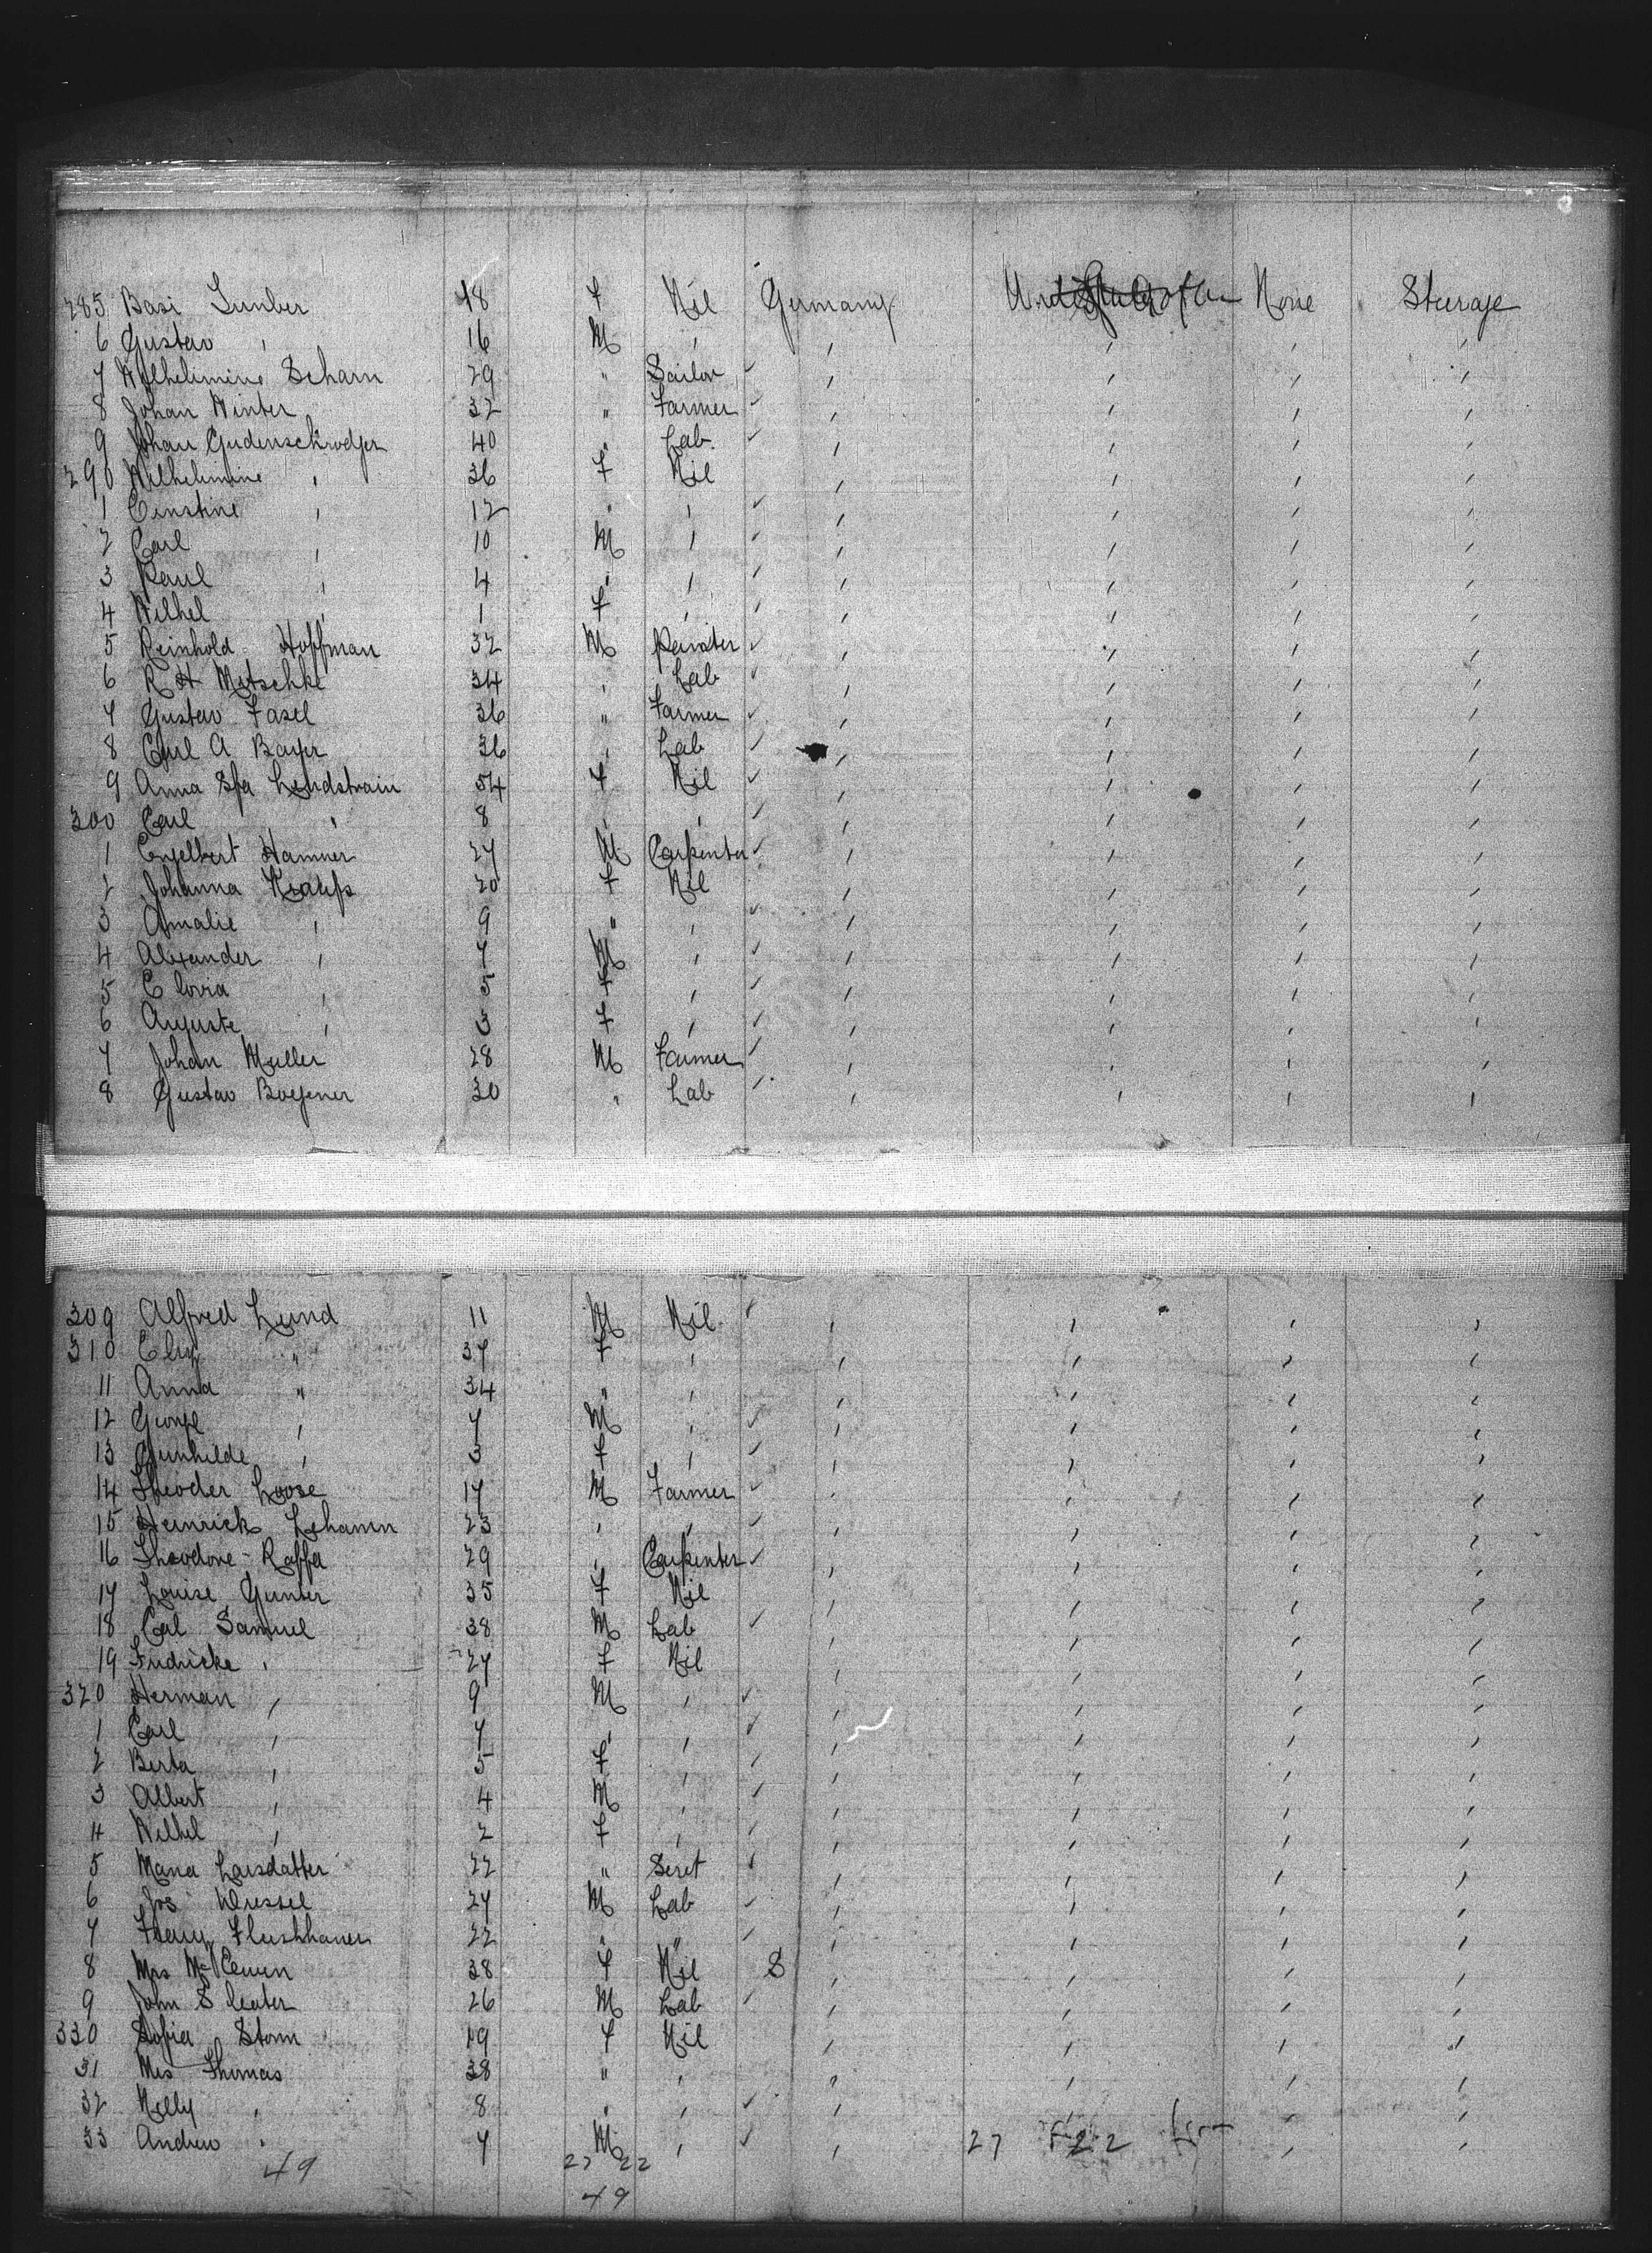 285 Basi Lumber 18 F Nil Germany None Steerage
6 Gustav " 16 M " " " " "
7 Wilhelmine Scharn 29 " Sailor " " " "
8 Johan Winter 32 " Farmer " " " "
9 Johan Gudenschrodjer 40 " Lab " " " "
290 Wilhelmine " 36 F Nil " " " "
1 Ernstine " 12 " " " " " "
2 Carl " 10 M " " " " "
3 Paul " 4 " " " " " "
4 Wilhel " 1 F " " " " "
5 Reinhold Hoffman 32 M Painter " " " "
6 R H Mitschke 34 " Lab " " " "
7 Gustav Fasel 36 " Farmer " " " "
8 Carl A Bayer 36 " Lab " " " "
9 Anna Sfa Lindstrain 54 F Nil " " " "
300 Carl " 8 " " " " " "
1 Engelbert Hammer 27 M Carpenter " " " "
2 Johanna Kraups 20 F Nil " " " "
3 Amalie " 9 " " " " " "
4 Alexander " 7 M " " " " "
5 Clovia " 5 F " " " " "
6 Auguste " 3 F " " " " "
7 Johan Muller 28 M Farmer " " " "
8 Gustav Boegener 30 " Lab " " " "
309 Alfred Lund 11 M Nil " " " "
310 Elig " 37 F " " " " "
11 Anna " 34 " " " " " "
12 George " 7 M " " " " "
13 Gunhilde " 3 F " " " " "
14 Theoder Loose 17 M Farmer " " " "
15 Heinrick Lehamn 23 " " " " " "
16 Theodore Raffa 29 " Carpenter " " " "
17 Louise Gunter 35 F Nil " " " "
18 Carl Samuel 38 M Lab " " " "
19 Fridricke " 27 F Nil " " " "
320 Herman " 9 M " " " " "
1 Carl " 7 " " " " " "
2 Berta " 5 F " " " " "
3 Albert " 4 M " " " " "
4 Wilhel " 2 F " " " " "
5 Maria Larsdatter 22 " Servt " " " "
6 Jos Wressel 27 M Lab " " " "
7 Fleishhauer 22 " " " " " "
8 Mrs McEwen 38 F Nil S " " " "
9 John Sleater 26 M Lab " " " "
330 Sofia Storm 19 F Nil " " " "
31 Mrs Thomas 38 " " " " " "
32 Nelly " 8 " " " " " "
33 Andrew " 7 M " " 27 F22 " "
49 27 22
49